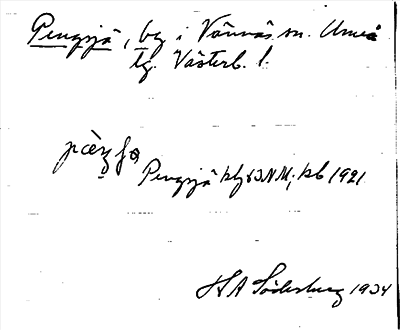 Pengsjä, by i Vännäs sn. Umeå
tg. Västerb. l.
Pengsjä kb 1921
H A Söderberg 1934